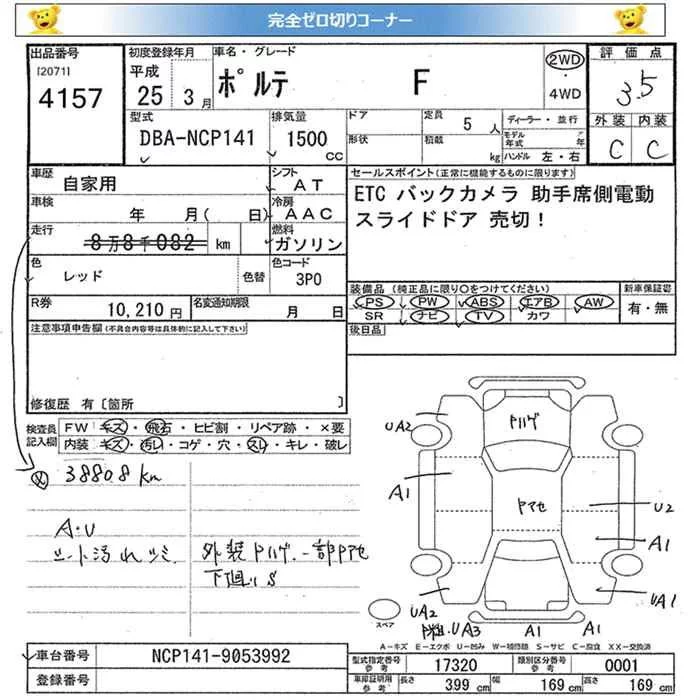 完全ゼロ切りコーナー
出品番号
[2071]
4157
初度登録年月
平成
25 3月
車名・グレード
ポルテ F
2WD
・
4WD
評価点
3.5
外装 内装
C C
型式
DBA-NCP141
排気量
1500
CC
ドア
形状
定員
5人
積載
kg
ディーラー・並行
モデル年式 年
ハンドル 左・右
車歴
自家用
シフト
AT
車検
年 月( 日)
冷房
AAC
走行
8万8千082 km
燃料
ガソリン
色
レッド
色替
カラーコード
3P0
R券
10,210円
名変通知期限
月 日
セールスポイント(正常に機能するものに限ります)
ETC バックカメラ 助手席側電動
スライドドア 売切!
装備品(純正品に限り○をつけてください)
PS PW ABS エアB AW
SR ナビ TV カワ
新車保証書
有・無
後日品
注意事項申告欄(不具合内容等は具体的に記入して下さい)
修復歴 有〔箇所 〕
検査員記入欄
FW キズ・飛石・ヒビ割・リペア跡・×要
内装 キズ・汚れ・コゲ・穴・スレ・キレ・破レ
38808km
A・U
シート汚れシミ
外装トハゲ、一部トヤセ
下廻りS
トハゲ
トヤセ
UA2
A1
U2
A1
UA1
UA2
UA3
A1
A1
スペア
A-キズ E-エクボ U-凹み W-補修跡 S-サビ C-腐食 XX-交換済
車台番号
NCP141-9053992
登録番号
型式指定番号
参考
17320
類別区分番号
参考
0001
車庫証明用
参考
長さ
399cm
幅
169cm
高さ
169cm